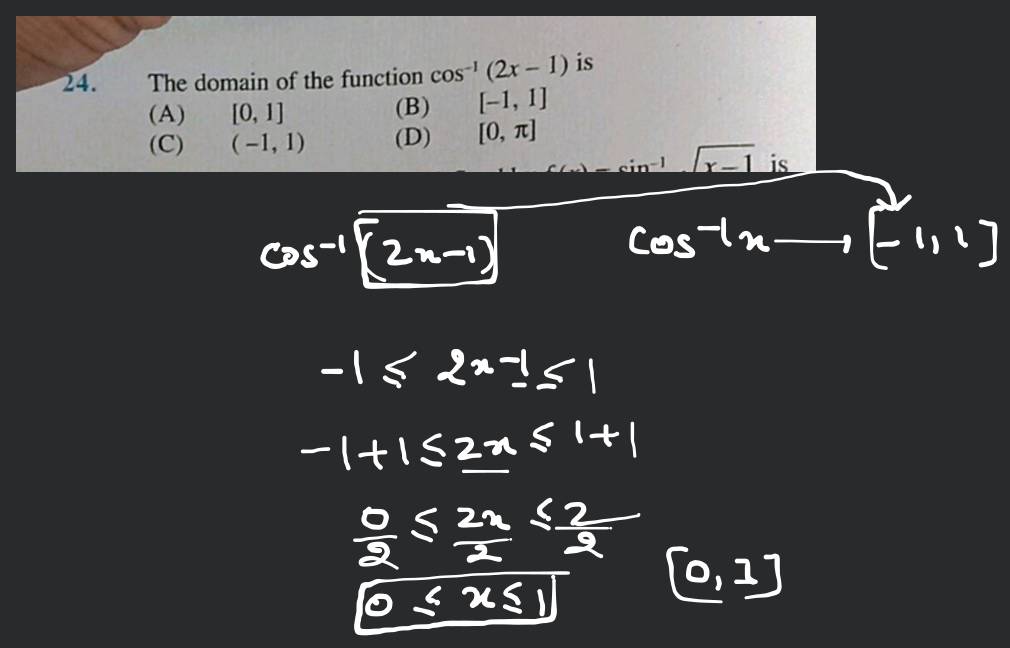 24. The domain of the function cos⁻¹ (2x – 1) is
(A) [0, 1] (B) [–1, 1]
(C) (–1, 1) (D) [0, π]
f(x) = sin⁻¹ √x – 1 is
cos⁻¹ (2x-1) cos⁻¹x → [-1, 1]
-1 ≤ 2x-1 ≤ 1
-1+1 ≤ 2x ≤ 1+1
0/2 ≤ 2x/2 ≤ 2/2
0 ≤ x ≤ 1 [0, 1]